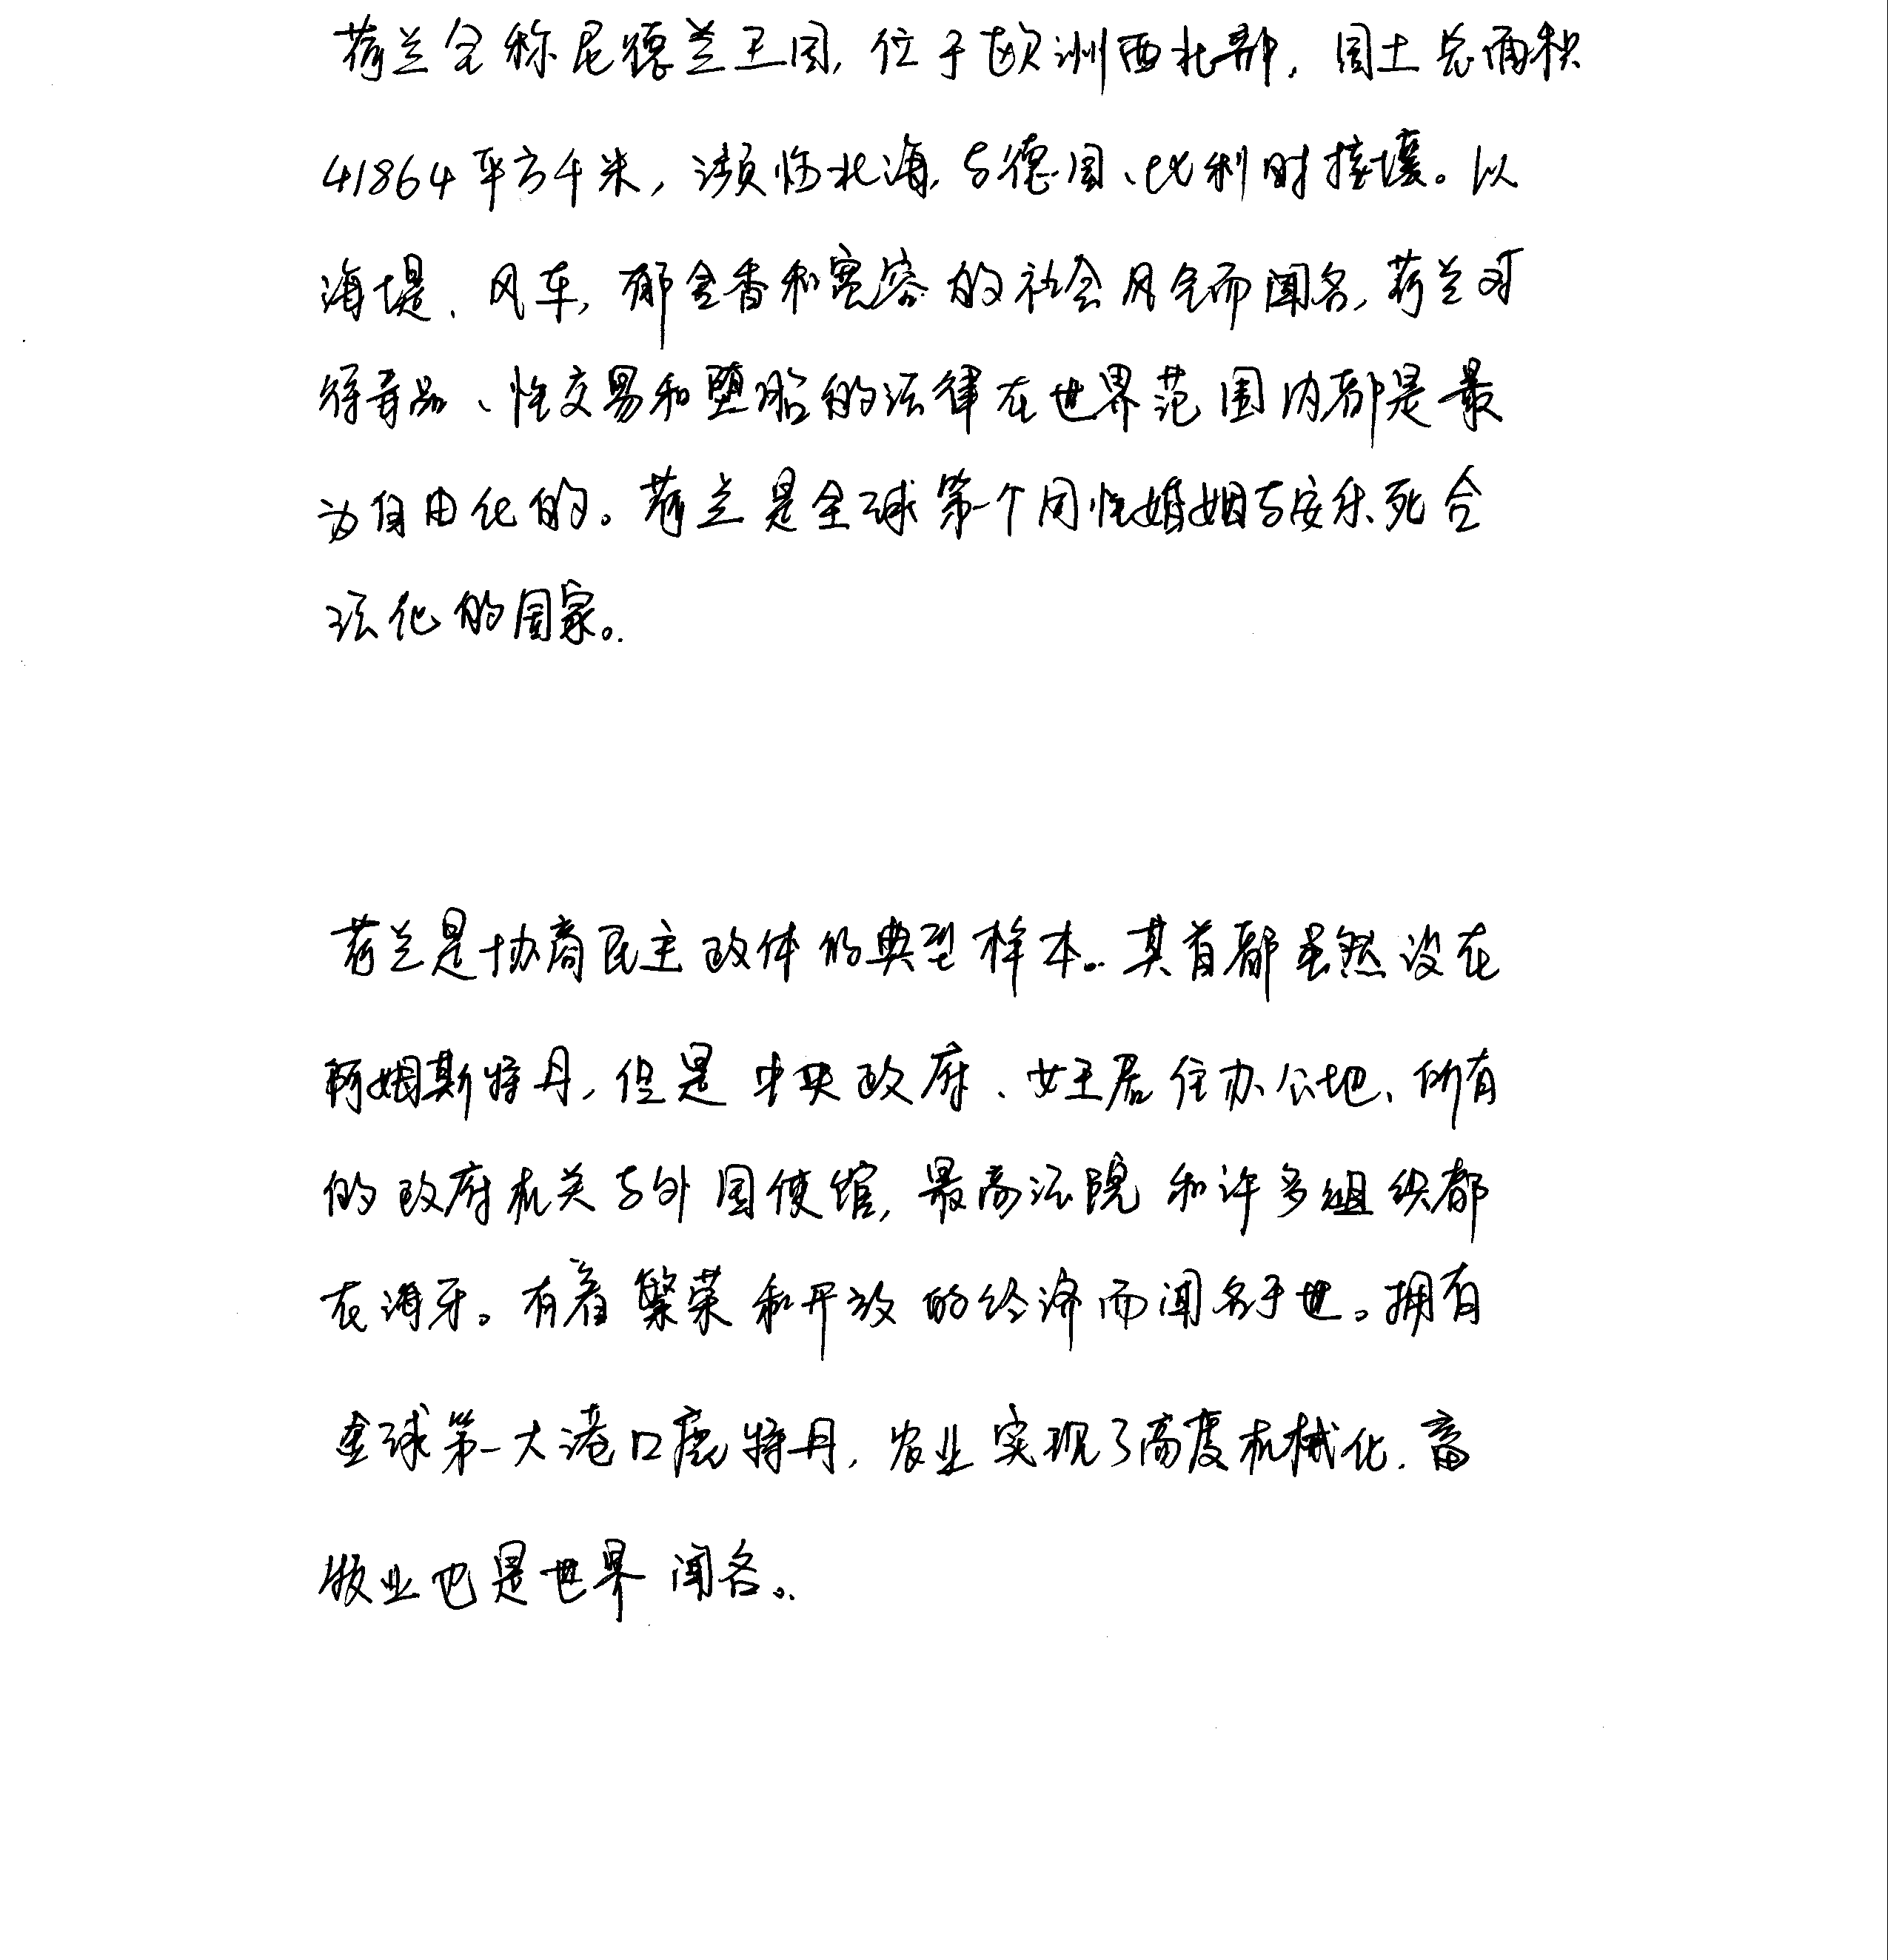 荷兰全称尼德兰王国,位于欧洲西北部,国土总面积
41864平方千米,濒临北海,与德国、比利时接壤。以
海堤、风车,郁金香和宽容的社会风气而闻名,荷兰对
待毒品、性交易和堕胎的法律在世界范围内都是最
为自由化的。荷兰是全球第一个同性婚姻与安乐死合
法化的国家。
荷兰是协商民主政体的典型样本。其首都虽然设在
阿姆斯特丹,但是中央政府、女王居住办公地、所有
的政府机关与外国使馆,最高法院和许多组织都
在海牙。有着繁荣和开放的经济而闻名于世。拥有
全球第一大港口鹿特丹,农业实现了高度机械化.畜
牧业也是世界闻名。